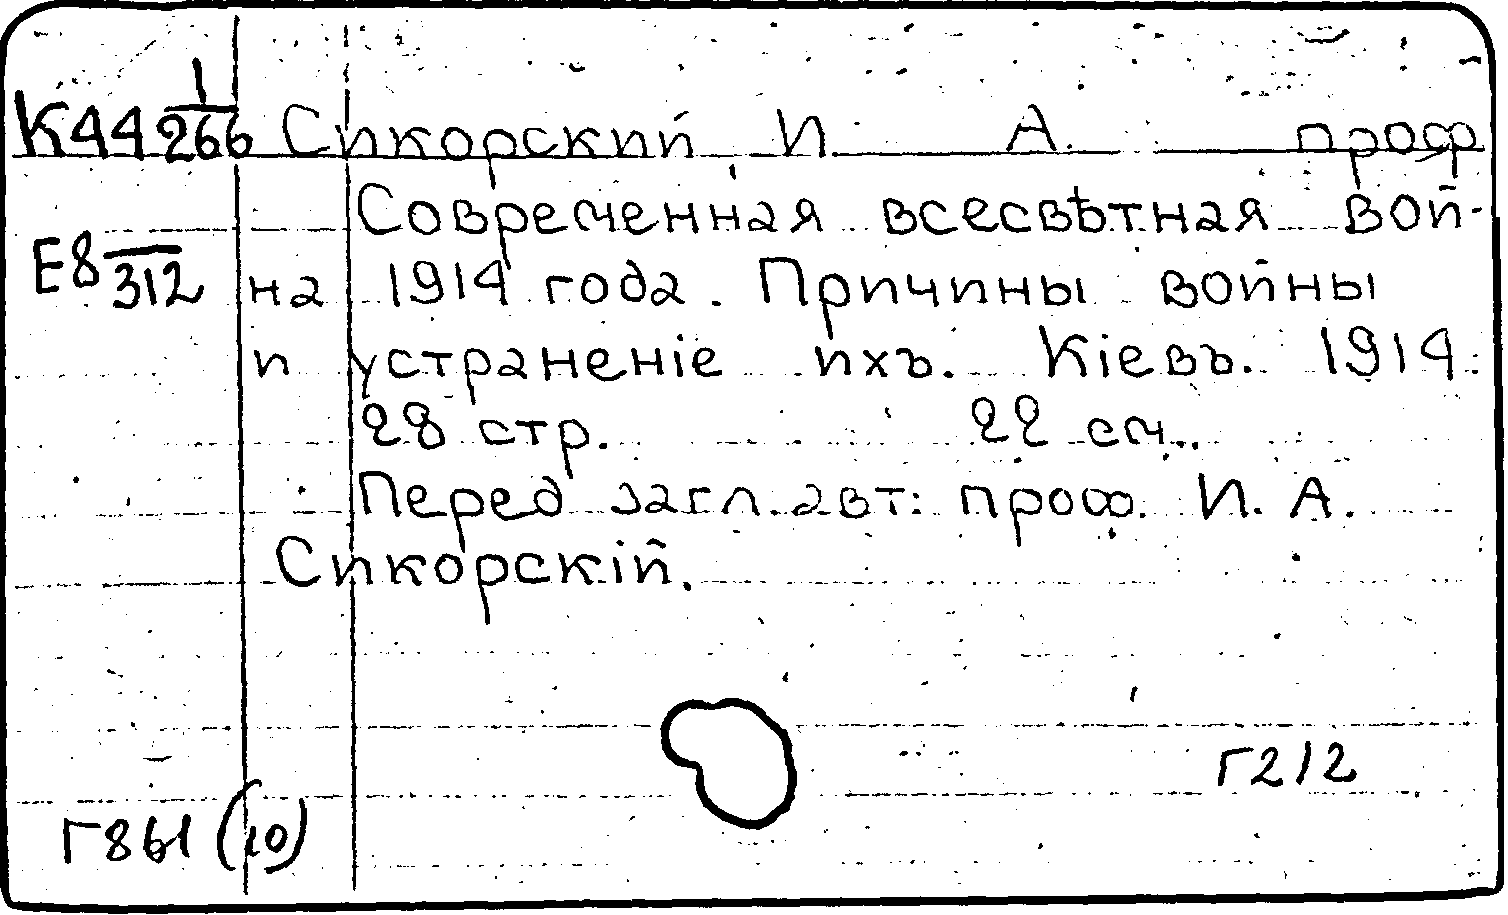 К44 1/266 Сикорский И. А. проф
Современная всесвѣтная вой-
Е8 /312
на 1914 года. Причины войны
и устраненіе ихъ. Кіевъ. 1914.
28 стр. 22 см.
Перед загл. авт: проф. И. А.
Сикорскій.
Г212
Г861 (10)